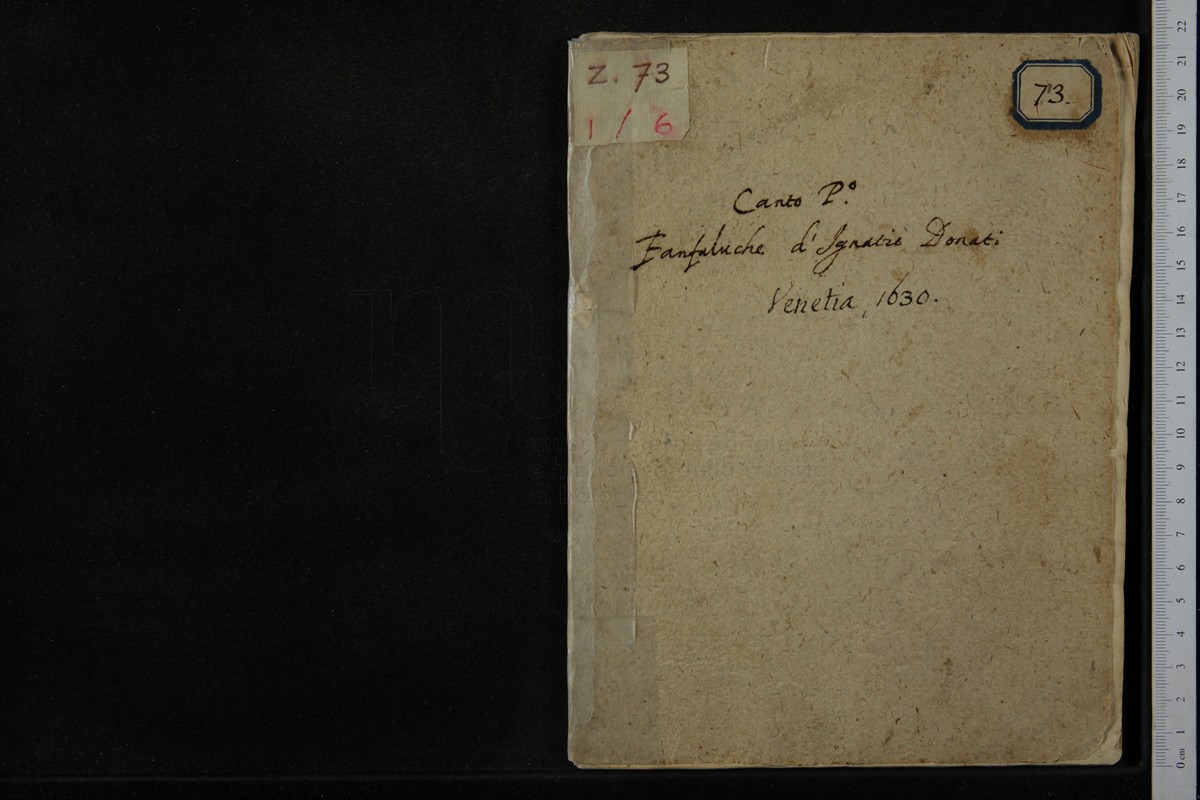 Z. 73
1 / 6
73.
Canto P.º
Fanfaluche d'Ignatio Donati
Venetia, 1630.
22
21
20
19
18
17
16
15
14
13
12
11
10
9
8
7
6
5
4
3
2
1
0 cm